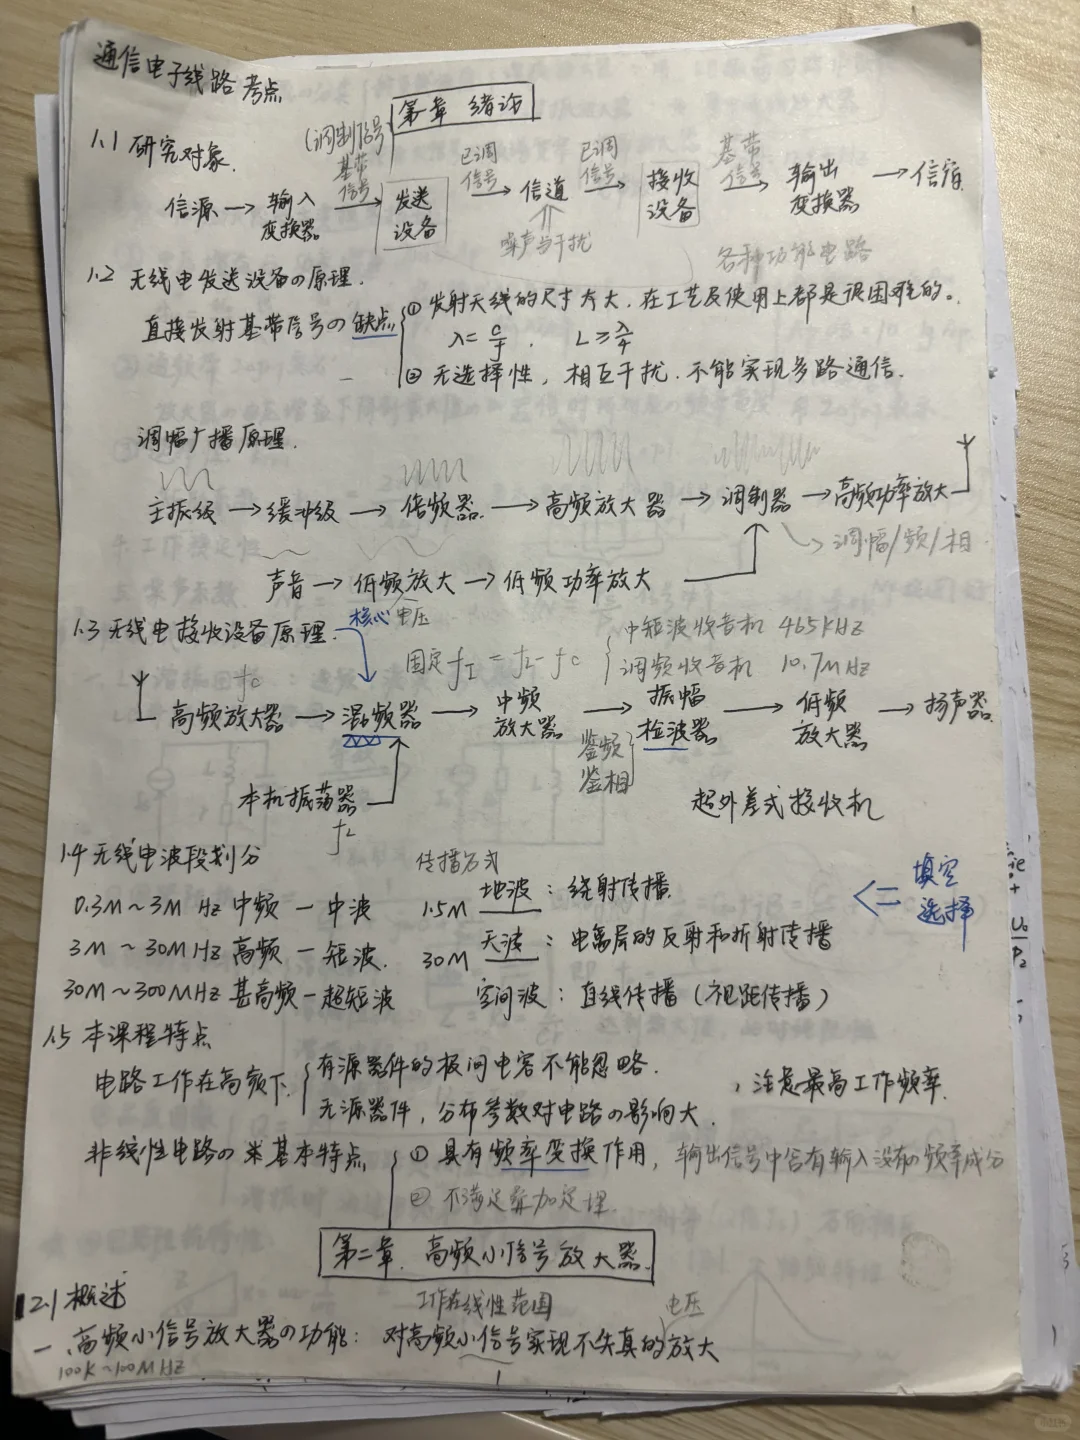 通信电子线路考点
第一章 绪论
1.1 研究对象.
(调制信号)
基带信号 已调信号 已调信号 基带信号
信源 → 输入变换器 → 发送设备 → 信道 → 接收设备 → 输出变换器 → 信宿.
噪声与干扰
各种功能电路
1.2 无线电发送设备の原理.
直接发射基带信号の缺点 ① 发射天线的尺寸太大.在工艺及使用上都是很困难的。
λ = c/f . L ≥ λ/4
② 无选择性, 相互干扰.不能实现多路通信.
调幅广播原理.
主振级 → 缓冲级 → 倍频器 → 高频放大器 → 调制器 → 高频功率放大
→ 调幅/频/相.
声音 → 低频放大 → 低频功率放大
电压
1.3 无线电接收设备原理.
核心
固定 fI = fL - fc
中短波收音机 465KHz
调频收音机 10.7MHz
fc
高频放大器 → 混频器 → 中频放大器 → 振幅检波器 → 低频放大器 → 扬声器.
鉴频
鉴相
本机振荡器
fL
超外差式接收机
1.4 无线电波段划分
传播方式
0.3M~3M Hz 中频 — 中波
3M ~ 30MHz 高频 — 短波.
30M~300MHz 甚高频 — 超短波
地波: 绕射传播.
1.5M
天波: 电离层的反射和折射传播
30M
空间波: 直线传播 (视距传播)
⇐ 填空
选择
1.5 本课程特点
电路工作在高频下. 有源器件的极间电容不能忽略.
, 注意最高工作频率.
无源器件, 分布参数对电路の影响大.
非线性电路の 基本特点 ① 具有频率变换作用, 输出信号中含有输入没有の频率成分
② 不满足叠加定理.
第二章. 高频小信号放大器.
2.1 概述
工作在线性范围
电压
一.高频小信号放大器の功能: 对高频小信号实现不失真的放大
100K~100MHz